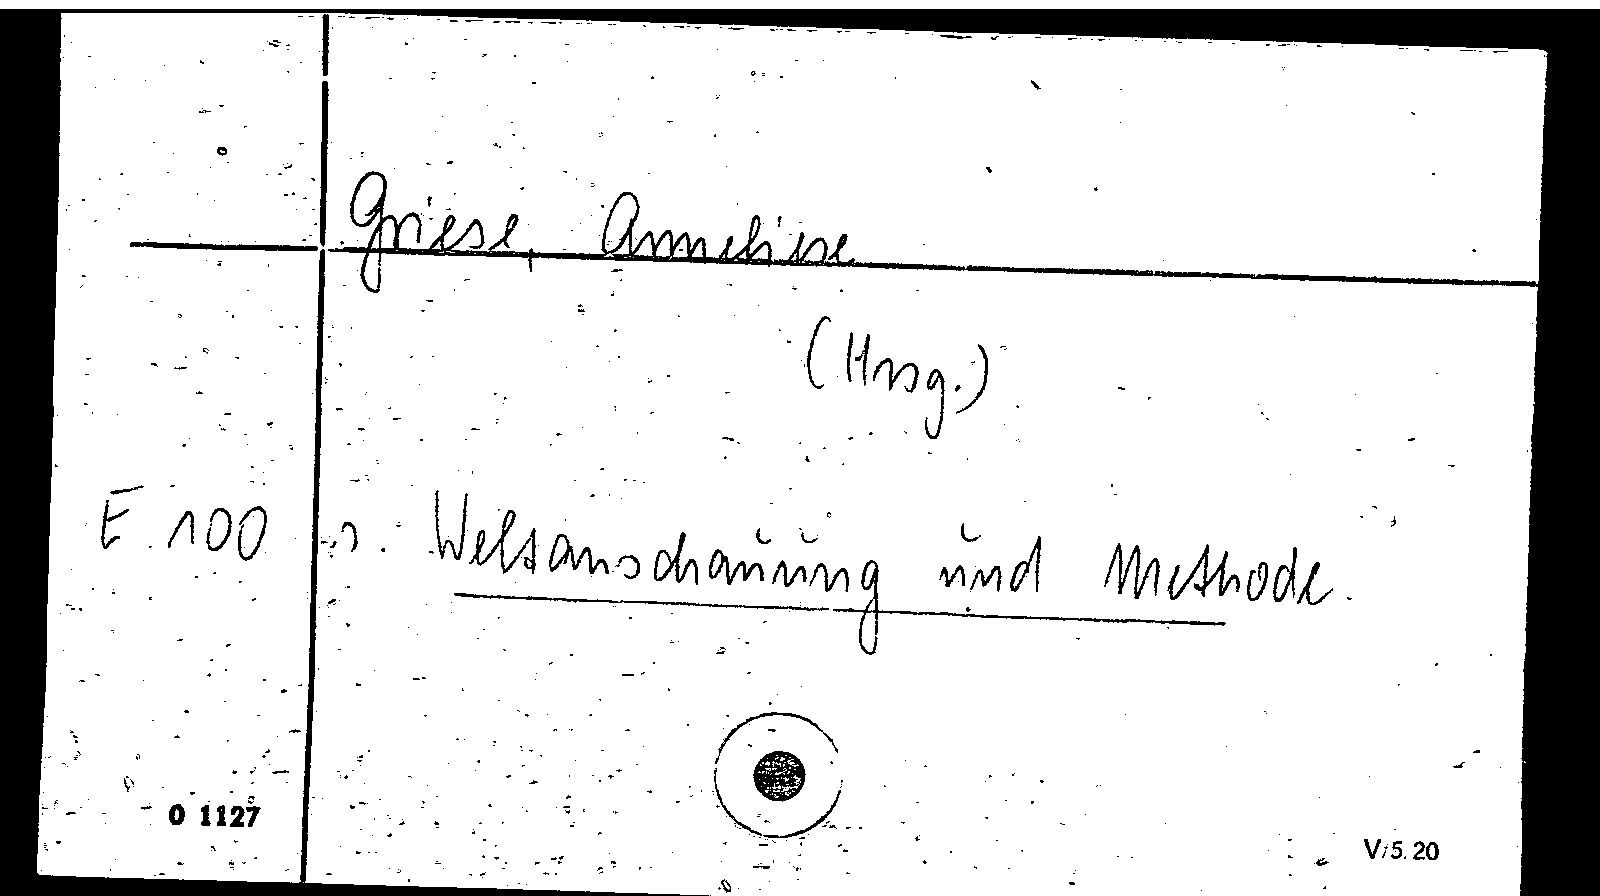 Griese, Anneliese
(Hrsg.)
E 100 s. Weltanschauung und Methode.
O 1127
V/5.20